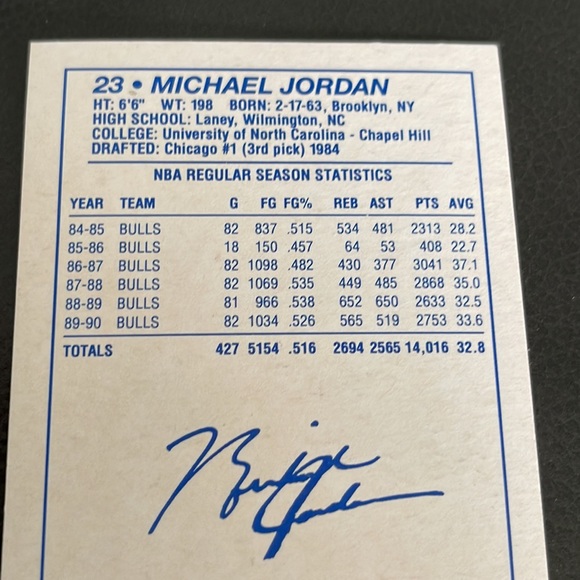 23 • MICHAEL JORDAN
HT: 6'6" WT: 198 BORN: 2-17-63, Brooklyn, NY
HIGH SCHOOL: Laney, Wilmington, NC
COLLEGE: University of North Carolina - Chapel Hill
DRAFTED: Chicago #1 (3rd pick) 1984
NBA REGULAR SEASON STATISTICS
YEAR TEAM G FG FG% REB AST PTS AVG
84-85 BULLS 82 837 .515 534 481 2313 28.2
85-86 BULLS 18 150 .457 64 53 408 22.7
86-87 BULLS 82 1098 .482 430 377 3041 37.1
87-88 BULLS 82 1069 .535 449 485 2868 35.0
88-89 BULLS 81 966 .538 652 650 2633 32.5
89-90 BULLS 82 1034 .526 565 519 2753 33.6
TOTALS 427 5154 .516 2694 2565 14,016 32.8
Michael Jordan